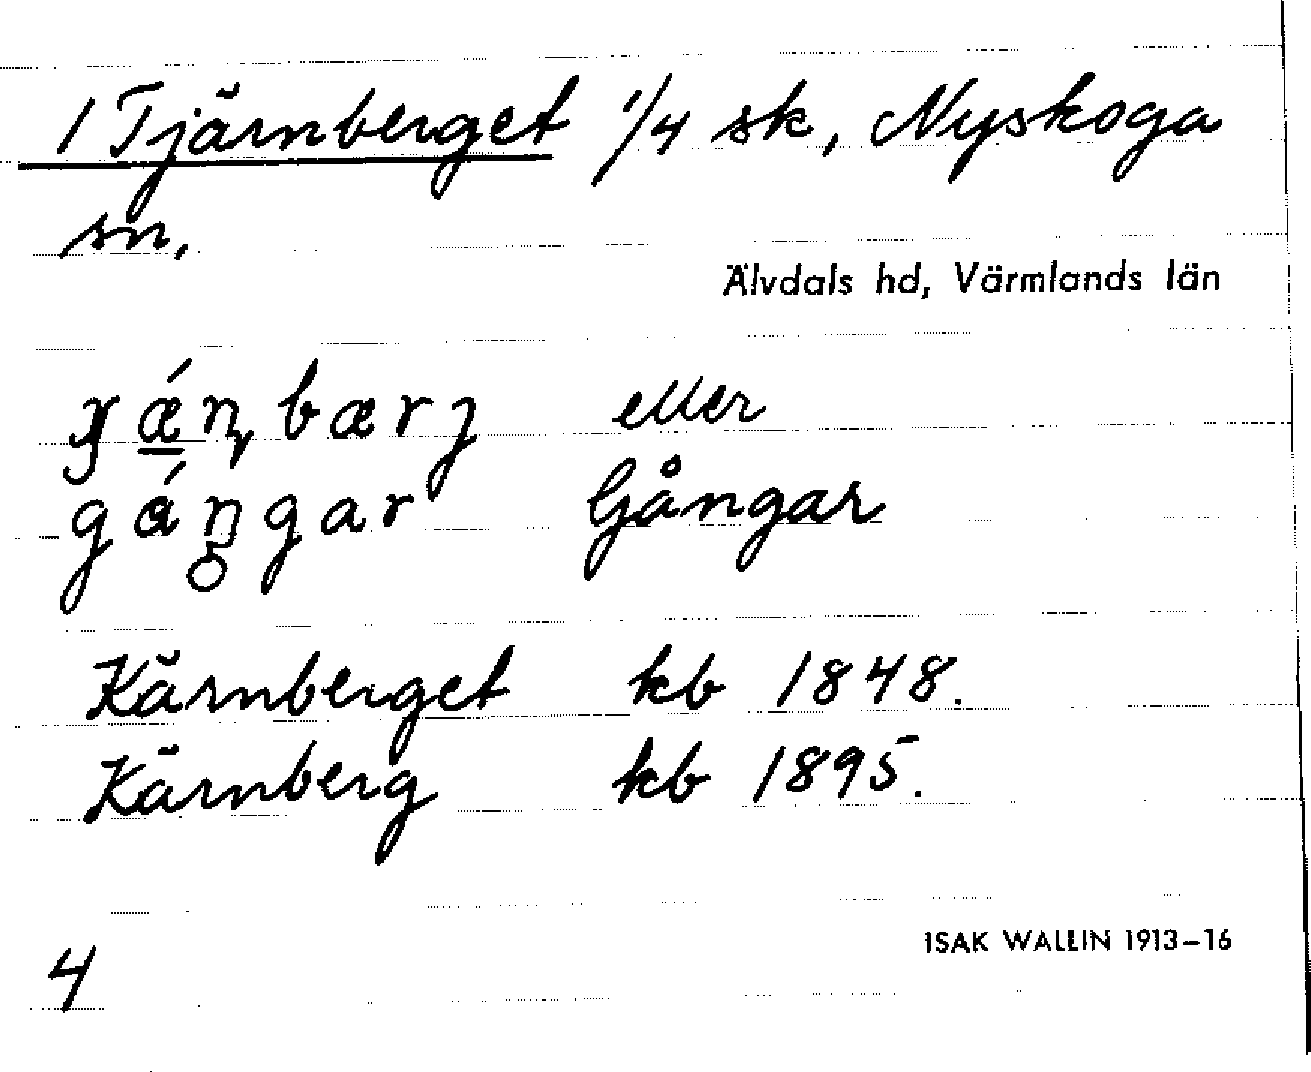 1 Tjärnberget 1/4 sk, Nyskoga
sn,
Älvdals hd, Värmlands län
eller
Gångar
Kärnberget kb 1848.
Kärnberg kb 1895.
ISAK WALLIN 1913-16
4